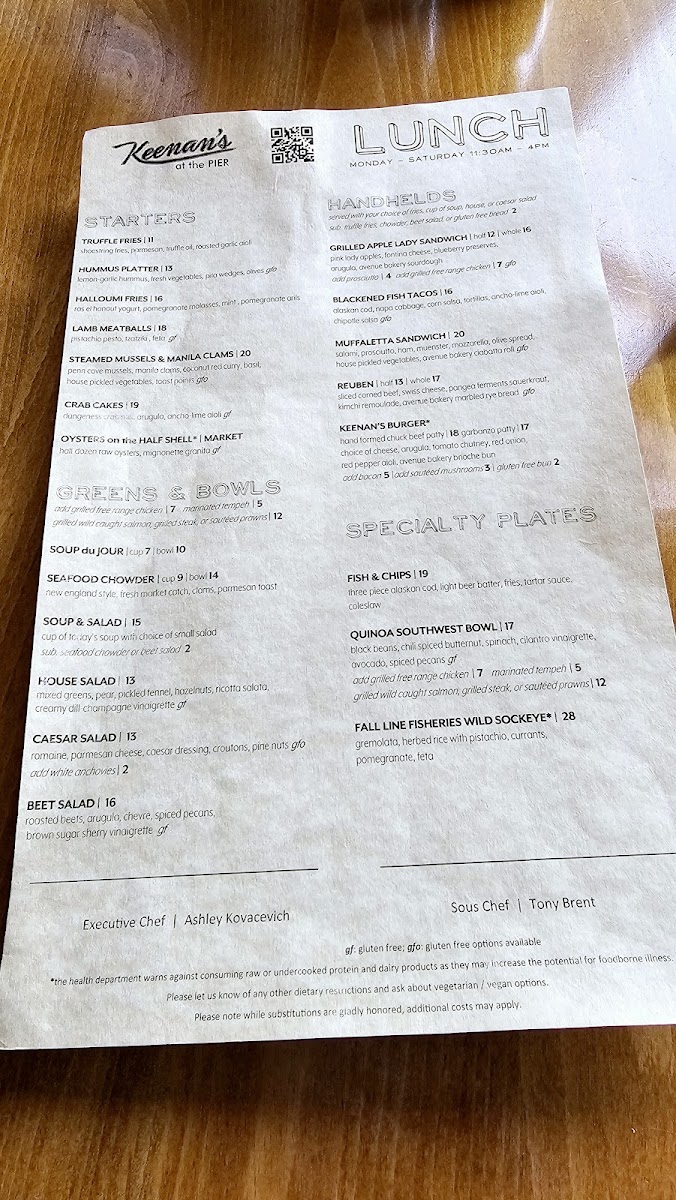 Keenan's
at the PIER
LUNCH
MONDAY – SATURDAY 11:30AM – 4PM
STARTERS
TRUFFLE FRIES | 11
shoestring fries, parmesan, truffle oil, roasted garlic aioli
HUMMUS PLATTER | 13
lemon-garlic hummus, fresh vegetables, pita wedges, olives gfo
HALLOUMI FRIES | 16
ras el hanout yogurt, pomegranate molasses, mint, pomegranate arils
LAMB MEATBALLS | 18
pistachio pesto, tzatziki, feta gf
STEAMED MUSSELS & MANILA CLAMS | 20
penn cove mussels, manila clams, coconut red curry, basil,
house pickled vegetables, toast points gfo
CRAB CAKES | 19
dungeness crab, arugula, ancho-lime aioli gf
OYSTERS on the HALF SHELL* | MARKET
half dozen raw oysters, mignonette granita gf
GREENS & BOWLS
add grilled free range chicken | 7 marinated tempeh | 5
grilled wild caught salmon, grilled steak, or sautéed prawns | 12
SOUP du JOUR | cup 7 | bowl 10
SEAFOOD CHOWDER | cup 9 | bowl 14
new england style, fresh market catch, clams, parmesan toast
SOUP & SALAD | 15
cup of today's soup with choice of small salad
sub. seafood chowder or beet salad 2
HOUSE SALAD | 13
mixed greens, pear, pickled fennel, hazelnuts, ricotta salata,
creamy dill-champagne vinaigrette gf
CAESAR SALAD | 13
romaine, parmesan cheese, caesar dressing, croutons, pine nuts gfo
add white anchovies | 2
BEET SALAD | 16
roasted beets, arugula, chevre, spiced pecans,
brown sugar sherry vinaigrette gf
HANDHELDS
served with your choice of fries, cup of soup, house, or caesar salad
sub. truffle fries, chowder, beet salad, or gluten free bread 2
GRILLED APPLE LADY SANDWICH | half 12 | whole 16
pink lady apples, fontina cheese, blueberry preserves,
arugula, avenue bakery sourdough
add prosciutto | 4 add grilled free range chicken | 7 gfo
BLACKENED FISH TACOS | 16
alaskan cod, napa cabbage, corn salsa, tortillas, ancho-lime aioli,
chipotle salsa gfo
MUFFALETTA SANDWICH | 20
salami, prosciutto, ham, muenster, mozzarella, olive spread,
house pickled vegetables, avenue bakery ciabatta roll gfo
REUBEN | half 13 | whole 17
sliced corned beef, swiss cheese, pangea ferments sauerkraut,
kimchi remoulade, avenue bakery marbled rye bread gfo
KEENAN'S BURGER*
hand formed chuck beef patty | 18 garbanzo patty | 17
choice of cheese, arugula, tomato chutney, red onion,
red pepper aioli, avenue bakery brioche bun
add bacon 5 | add sautéed mushrooms 3 | gluten free bun 2
SPECIALTY PLATES
FISH & CHIPS | 19
three piece alaskan cod, light beer batter, fries, tartar sauce,
coleslaw
QUINOA SOUTHWEST BOWL | 17
black beans, chili spiced butternut, spinach, cilantro vinaigrette,
avocado, spiced pecans gf
add grilled free range chicken | 7 marinated tempeh | 5
grilled wild caught salmon, grilled steak, or sautéed prawns | 12
FALL LINE FISHERIES WILD SOCKEYE* | 28
gremolata, herbed rice with pistachio, currants,
pomegranate, feta
Executive Chef | Ashley Kovacevich
Sous Chef | Tony Brent
gf: gluten free; gfo: gluten free options available
*the health department warns against consuming raw or undercooked protein and dairy products as they may increase the potential for foodborne illness.
Please let us know of any other dietary restrictions and ask about vegetarian / vegan options.
Please note while substitutions are gladly honored, additional costs may apply.